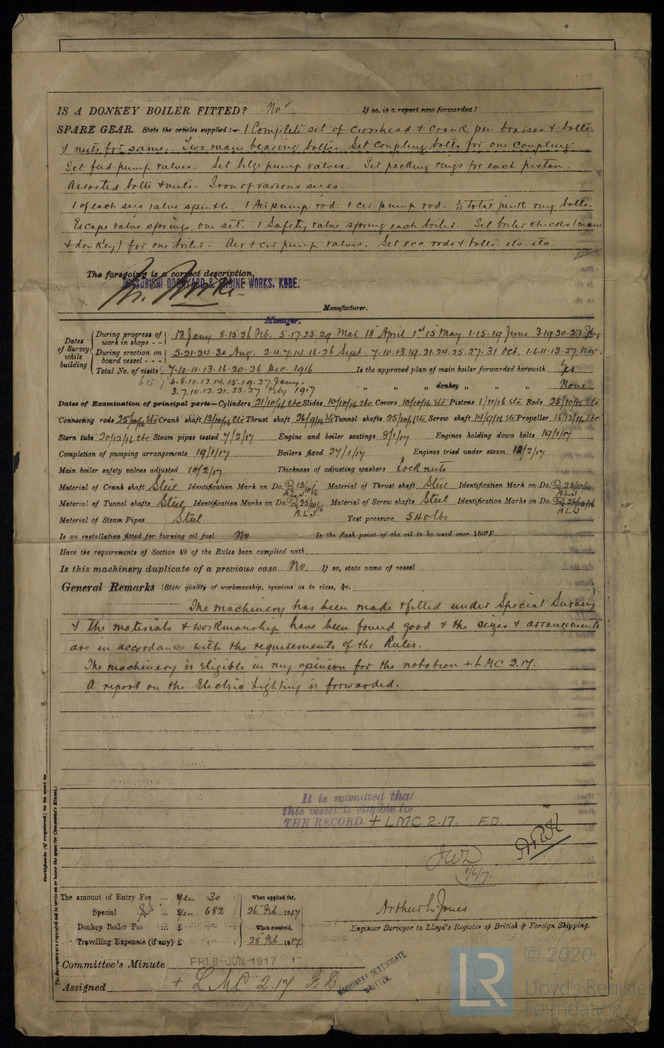 IS A DONKEY BOILER FITTED? No If so, is a report now forwarded?
SPARE GEAR. State the articles supplied:— 1 Complete set of Crosshead & Crank pin brasses & bolts
& nuts for same. Two main bearing bolts. Set Coupling bolts for one Coupling.
Set feed pump valves. Set bilge pump valves. Set packing rings for each piston.
Assorted bolts & nuts. Iron of various sizes
1 of each size valve spindle. 1 Air pump rod. 1 Cir pump rod. total junk ring bolts.
Escape valve springs, one set. 1 Safety valve spring each boiler. Set boiler checks (main
& donkey) for one boiler. Air & cir pump valves. Set ecc. rods & bolts. etc. etc.
The foregoing is a correct description,
MITSUBISHI DOCKYARD & ENGINE WORKS, KOBE.
Manufacturer.
Manager.
Dates of Survey while building
During progress of work in shops - - 13 Jany 8.15.26 Feb. 5.17.25.29 Mar. 18 April 1st 15 May 1.15.19 June 3.19.20.27 July
During erection on board vessel - - - 5.21.24.30 Aug. 2.4.7.14.16.26 Sept. 7.10.13.19.21.24.25.27.31 Oct. 1.6.11.13.27 Nov.
Total No. of visits 7.10.11.13.16.20.26 Dec. 1916 Is the approved plan of main boiler forwarded herewith Yes
6.8.10.13.14.15.19.27 Jany.
3.7.10.13.21.23.27 Feby 1917 " " " donkey " " " None
Dates of Examination of principal parts—Cylinders 21/10/16 etc Slides 10/10/16 etc Covers 10/10/16 etc Pistons 1/11/16 etc Rods 25/10/16 etc
Connecting rods 25/10/16 etc Crank shaft 13/10/16 etc Thrust shaft 26/9/16 etc Tunnel shafts 25/10/16 etc Screw shaft 14/9/16 etc Propeller 15/12/16 etc
Stern tube 20/12/16 etc Steam pipes tested 7/2/17 Engine and boiler seatings 8/1/17 Engines holding down bolts 19/1/17
Completion of pumping arrangements 19/1/17 Boilers fixed 27/1/17 Engines tried under steam 12/2/17
Main boiler safety valves adjusted 10/2/17 Thickness of adjusting washers Lock nuts
Material of Crank shaft Steel Identification Mark on Do. A.L.J. Material of Thrust shaft Steel Identification Mark on Do. A.L.J.
Material of Tunnel shafts Steel Identification Marks on Do. A.L.J. Material of Screw shafts Steel Identification Marks on Do. A.L.J.
Material of Steam Pipes Steel Test pressure 540 lbs
Is an installation fitted for burning oil fuel No Is the flash point of the oil to be used over 150°F.
Have the requirements of Section 49 of the Rules been complied with
Is this machinery duplicate of a previous case No. If so, state name of vessel
General Remarks (State quality of workmanship, opinions as to class, &c.
The machinery has been made & fitted under Special Survey
& the materials & workmanship have been found good & the sizes & arrangements
are in accordance with the requirements of the Rules.
The machinery is eligible in my opinion for the notation + LMC 2.17.
A report on the Electric Lighting is forwarded.
It is submitted that
this vessel is eligible for
THE RECORD. + LMC 2.17. F.D.
JWD
8/6/17.
The amount of Entry Fee ... Yen 30 When applied for,
Special ... Yen 682 26 Feb. 1917
Donkey Boiler Fee ... £ When received,
Travelling Expenses (if any) £ 28 Feb. 1917
Arthur L. Jones
Engineer Surveyor to Lloyd's Register of British & Foreign Shipping.
Committee's Minute FRI. 8 JUN. 1917
Assigned + LMC 2.17 F.D.
MACHINERY CERTIFICATE
WRITTEN.
© 2020
LR
Lloyd's Register
Foundation